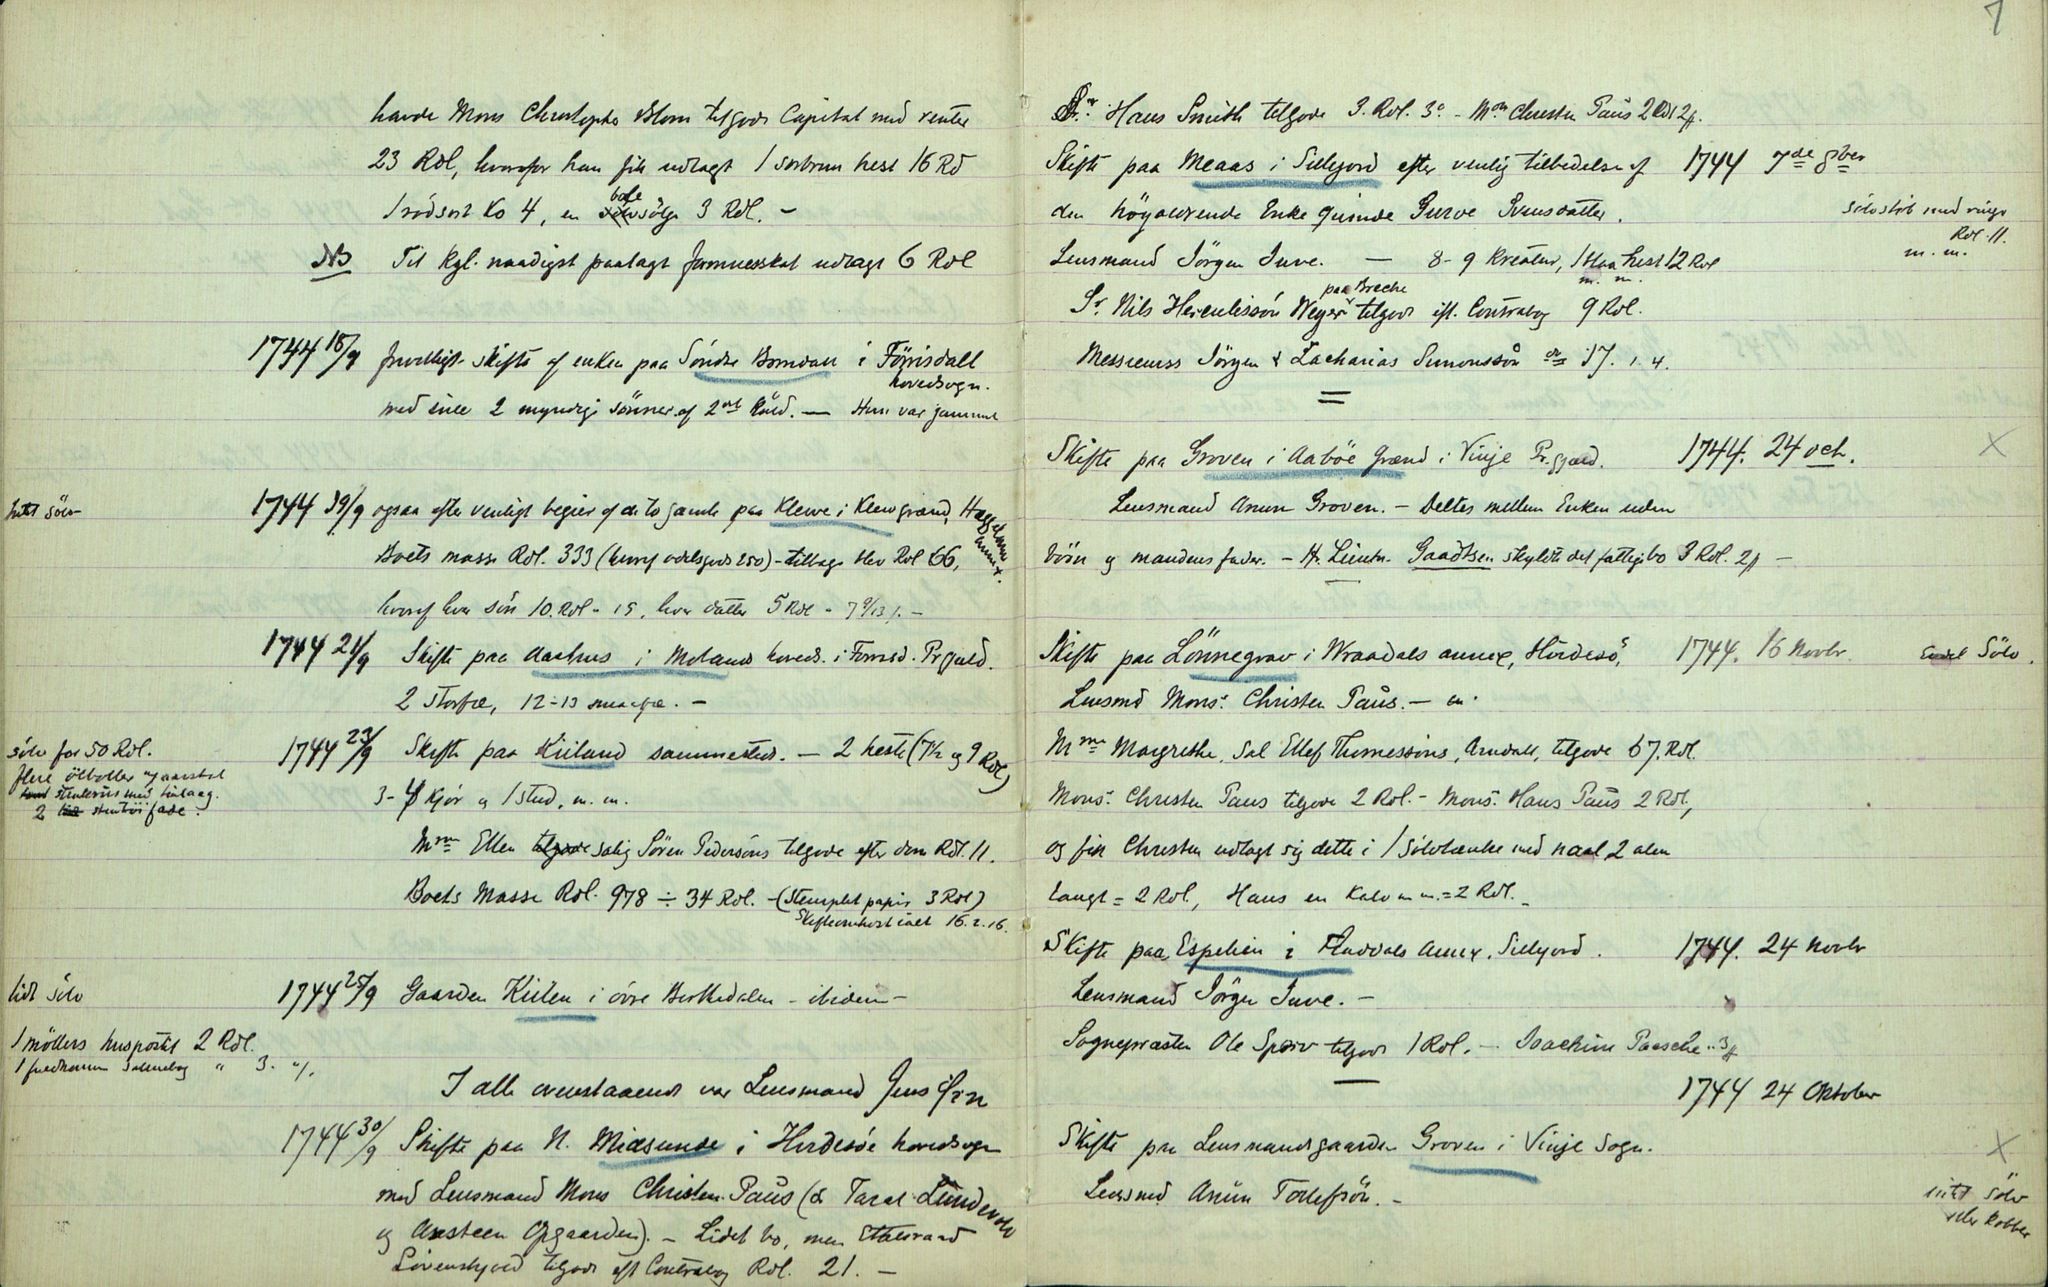 havde Mons Christopher Blom tilgode Capital med renter
23 Rdl, hvorfor han fik udlagt 1 sortbrun hest 16 Rd
1 rödsort Ko 4, en bolesölge 3 Rdl. -
NB Til Kgl. naadigst paalagt formuesskat udlagt 6 Rdl
1744 18/9 frivilligt skifte af enken paa Söndre Bomdall i Förrisdall
hovedsogn.
med sine 2 myndige sönner af 2det Kuld. — Hun var gammel
intet sölv
1744 19/9 ogsaa efter venligt begiær af de to gamle paa Kleuve i Klevgrænd,
Boets masse Rdl. 333 (hvoraf odelsgods 250) - tilbage blev Rdl 66,
hvoraf hver sön 10. Rdl - 15, hver datter 5 Rdl - 7 9/13 /. -
1744 21/9 Skifte paa Aashus i Moland hoveds. i Forrisd. Prgjæld.
2 storfæ, 12-13 smaafæ. -
sölv for 50 Rdl.
flere ölboller og aarstal
stenkrus med tinlaag.
2 stentöi fade.
1744 23/9 Skifte paa Kiiland sammesteds. — 2 heste (7½ og 9 Rdl)
3-4 Kjör og 1 stud, m. m.
Mme Ellen salig Sören Pedersöns tilgode efter dom Rdl. 11.
Boets Masse Rdl. 978 ÷ 34 Rdl. - (Stemplet papir 3 Rdl)
Skifteomkost ialt 16. 2. 16.
lidt sölv
1744 25/9 Gaarden Kiilen i övre Birkedalen - ibidem -
1 möllers huspostil 2 Rdl.
1 psalmebog " 3. "/.
I alle ovenstaaende var Lensmand Jens
1744 30/9 Skifte paa N. Midsunde i Hvidesöe hovedsogn
med Lensmand Mons Christen Paus (& Taral Lundevold
og Aasteen Opgaarden). - Lidet bo, men Etatsraad
Lövenskjold tilgode eft Contrabog Rdl. 21. -
7
Sr. Hans Smith tilgode 3. Rdl. 3o. - Mon Christen Paus 2 Rdl 2/.
Skifte paa Meaas i Sillejord efter venlig tilbedelse af 1744 7de 8ber
den högaldrende Enke Quinde Gurve Svensdatter.
sölvstöb med ringe
Rdl. 11.
m. m.
Lensmand Jörgen Juve. — 8-9 Kreatur, 1 blaa hest 12 Rdl
m. m.
paa Breche
Sr. Nils Herculissön Weyer tilgode ift. Contrabog 9 Rdl.
Messieurss Jörgen & Zacharias Simonssön do 17. 1. 4.
Skifte paa Groven i Aaböe Grænd i Vinje Pr.gjæld. 1744. 24 oct. X
Lensmand Anun Groven. - Deltes mellem Enken uden
börn og mandens fader. - Hr. Lieutn. Gaadtsen skyldte det fattige bo 3 Rdl. 2/ -
Skifte paa Lönnegrav i Wraadals annex, Hvidesö, 1744. 16 Novbr. Endel Sölv.
Lensmd Mons: Christen Paus. -
Mme Margrethe, Sal Ellef Thomessöns, Arndall, tilgode 67. Rdl.
Mons: Christen Paus tilgode 2 Rdl. - Mons: Hans Paus 2 Rdl.,
og fik Christen udlagt sig dette i 1 sölvlænke med naal 2 alen
langt = 2 Rdl, Hans en Kalv m m. = 2 Rdl. -
Skifte paa Espelien i Flaadals Annex, Sillejord. 1744. 24 Novbr
Lensmand Jörgen Juve. -
Sognepræsten Ole Sperv tilgode 1 Rdl. - Joachim Paasche " 3/
1744 24 Oktober
Skifte paa Lensmandsgaarden Groven i Vinje Sogn. X
Lensmd Anun Tollefsön. -
intet Sölv
eller Kobber